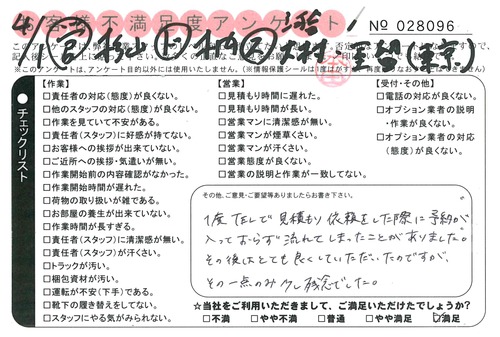 お客様不満足度アンケート
No 028096
チェックリスト
【作業】
□責任者の対応(態度)が良くない。
□他のスタッフの対応(態度)が良くない。
□作業を見ていて不安がある。
□責任者(スタッフ)に好感が持てない。
□お客様への挨拶が出来ていない。
□ご近所への挨拶・気遣いが無い。
□作業開始前の内容確認がなかった。
□作業開始時間が遅れた。
□荷物の取り扱いが雑である。
□お部屋の養生が出来ていない。
□作業時間が長すぎる。
□責任者(スタッフ)に清潔感が無い。
□責任者(スタッフ)が汗くさい。
□トラックが汚い。
□梱包資材が汚い。
□運転が不安(下手)である。
□靴下の履き替えをしてない。
□スタッフにやる気がみられない。
【営業】
□見積もり時間に遅れた。
□見積もり時間が長い。
□営業マンに清潔感が無い。
□営業マンが煙草くさい。
□営業マンが汗くさい。
□営業の態度が良くない。
□営業の説明と作業が一致してない。
【受付・その他】
□電話の対応が良くない。
□オプション業者の説明
・作業が良くない。
□オプション業者の対応
(態度)が良くない。
その他、ご意見・ご要望等ありましたらお書き下さい。
1度TELで見積もり依頼をした際に予約が
入っておらず流れてしまったことがありました。
その後はとても良くしていただいたのですが、
その一点のみ少し残念でした。
☆当社をご利用いただきまして、ご満足いただけたでしょうか?
□不満 □やや不満 □普通 □やや満足 ☑満足